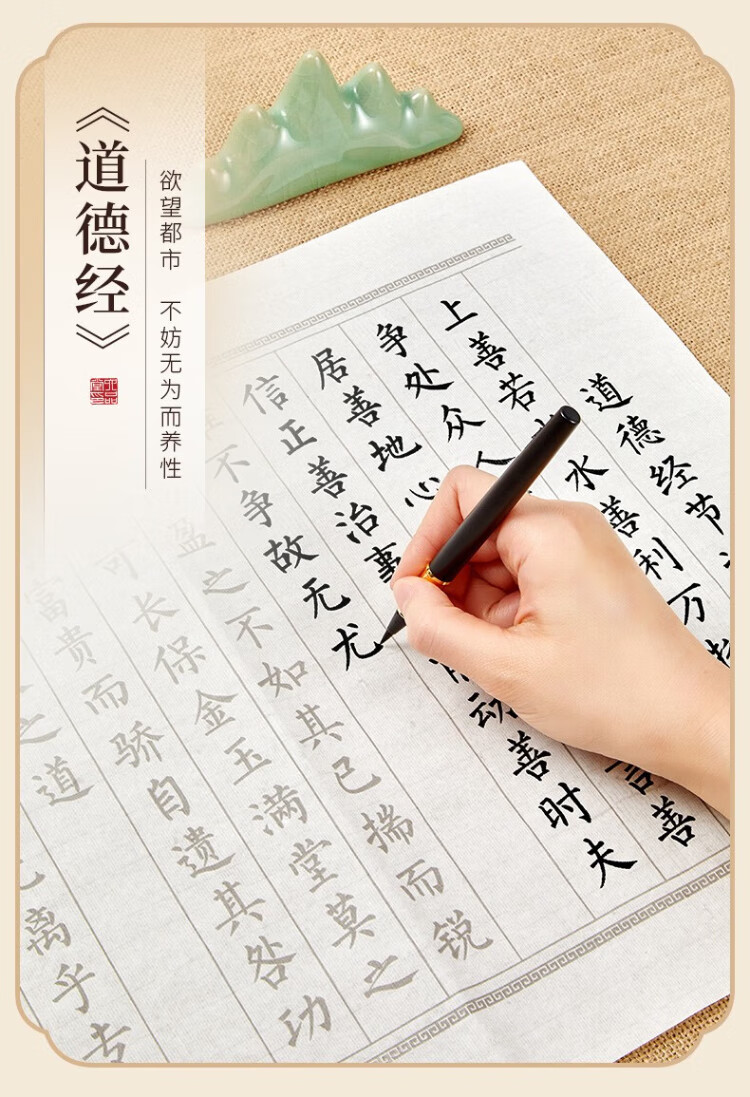 《道德经》
欲望都市 不妨无为而养性
道德经节
上善若水善利万物
争处众人
居善地心言善
信正善治事动善时夫
不争故无尤
盈之不如其已揣而锐
可长保金玉满堂莫之
富贵而骄自遗其咎功
之道
离乎专